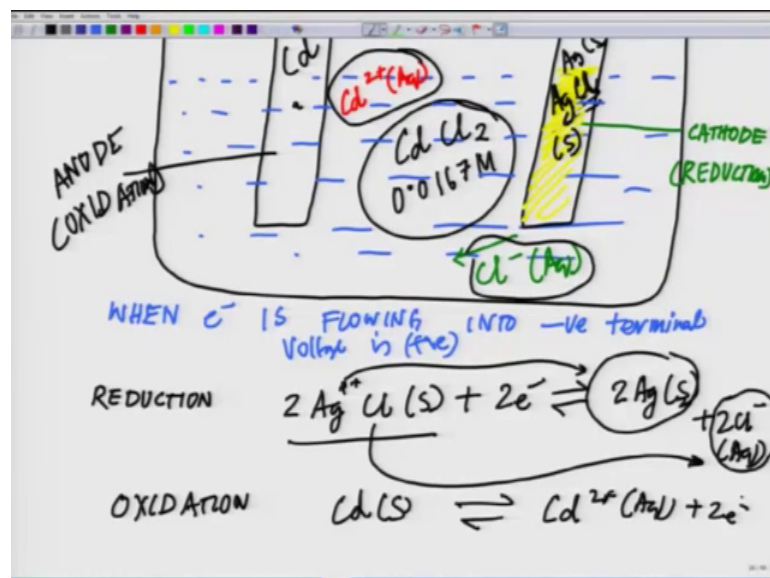 Cd
Cd2+(Aq)
Ag(s)
AgCl
(s)
CdCl2
0.0167M
ANODE
(OXIDATION)
CATHODE
(REDUCTION)
Cl- (Aq)
WHEN e- IS FLOWING INTO -ve terminal
Voltage is (+ve)
REDUCTION 2 Ag+ Cl (s) + 2e- ⇌ 2 Ag (s)
+ 2Cl-
(Aq)
OXIDATION Cd(s) ⇌ Cd2+ (Aq) + 2e-